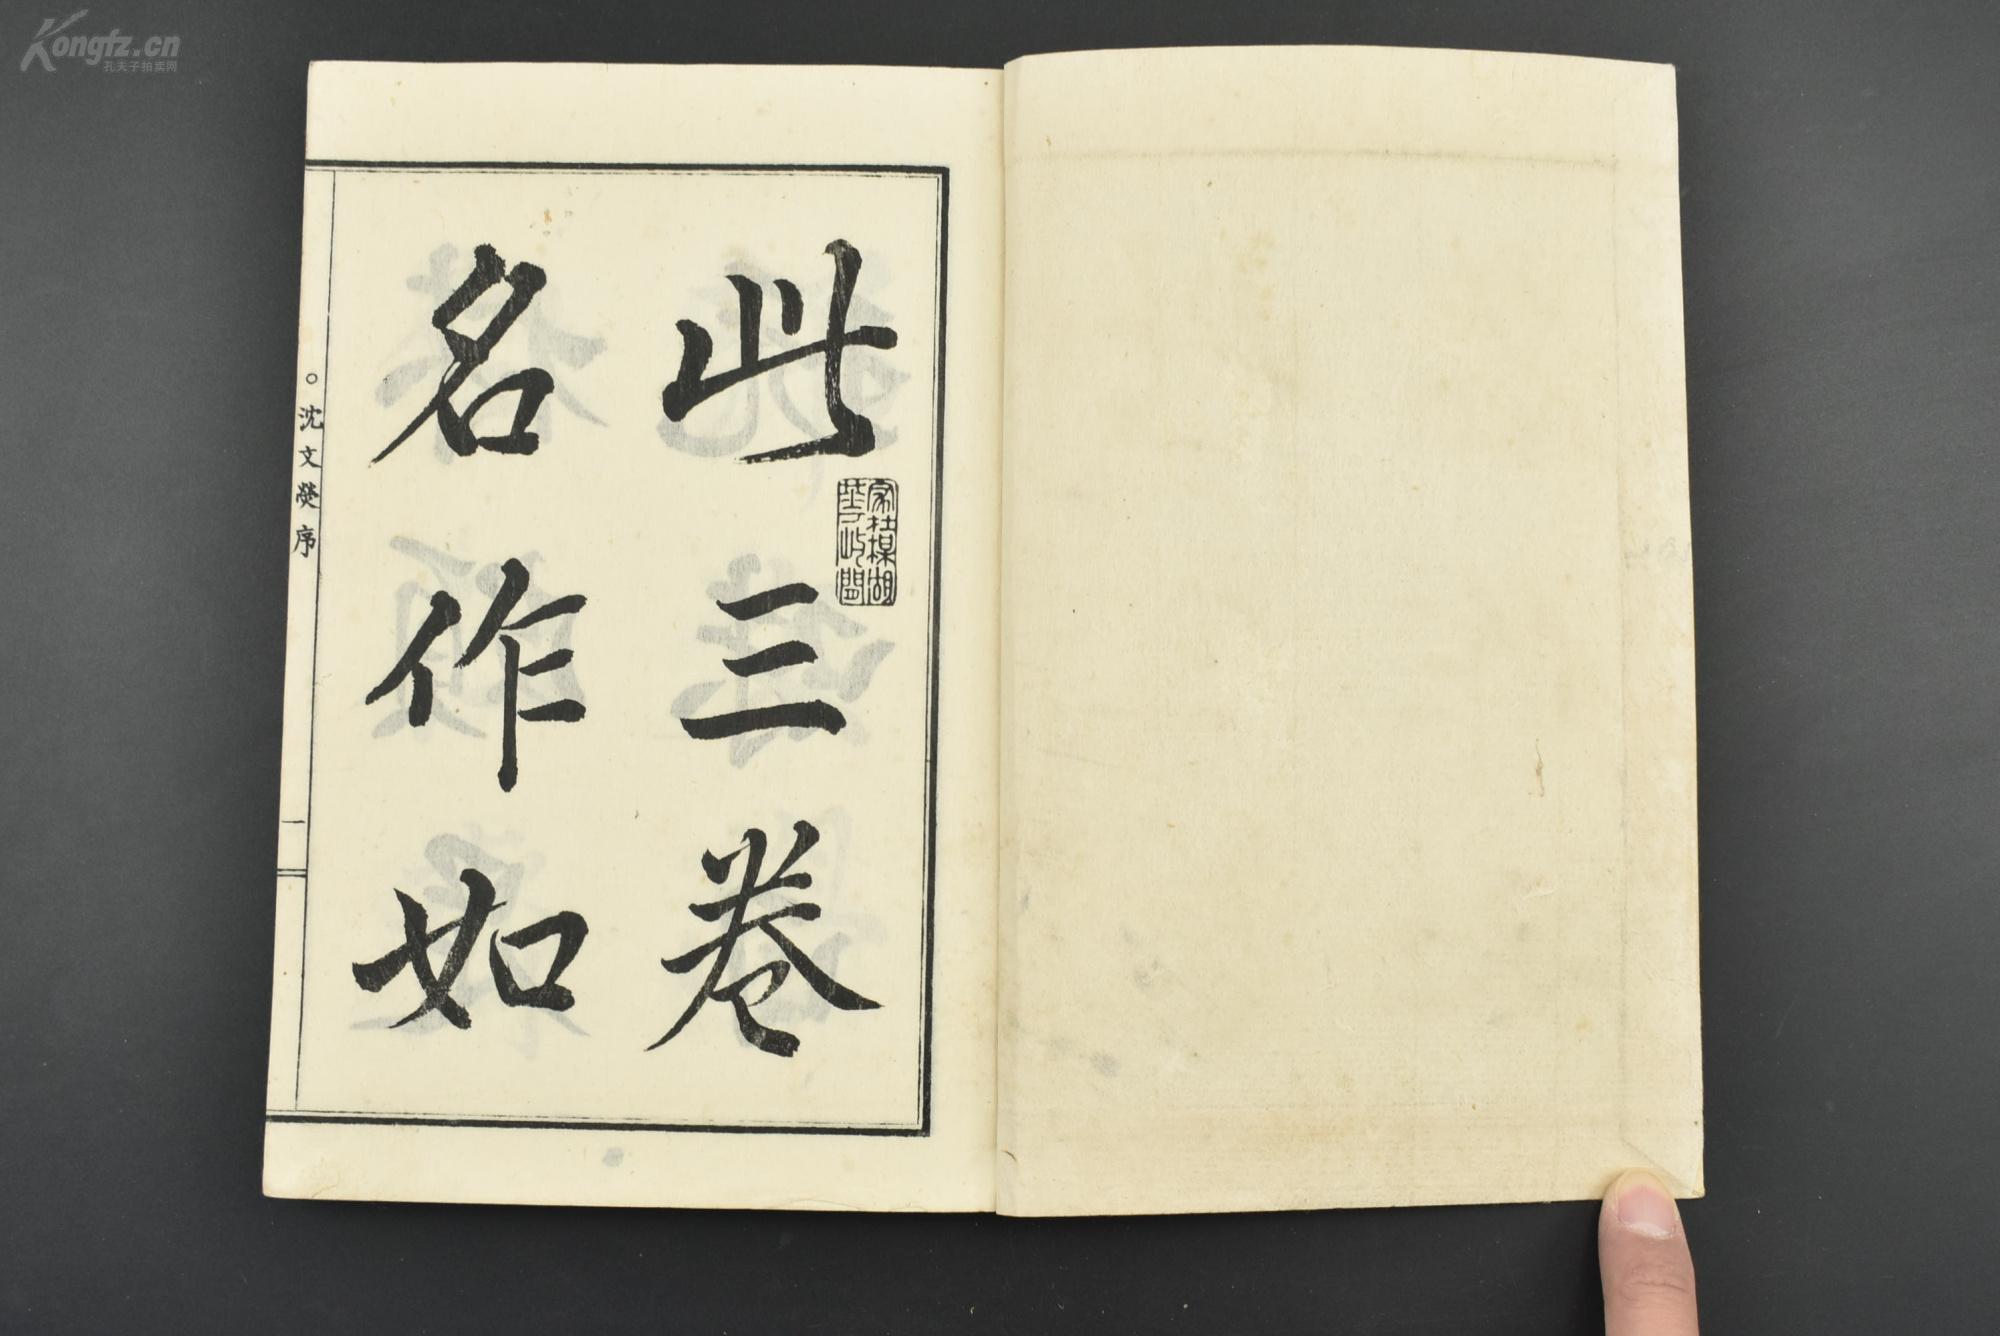 此三卷
名作如
家在某湖
沈文熒序
一
Kongfz.cn
孔夫子拍卖网